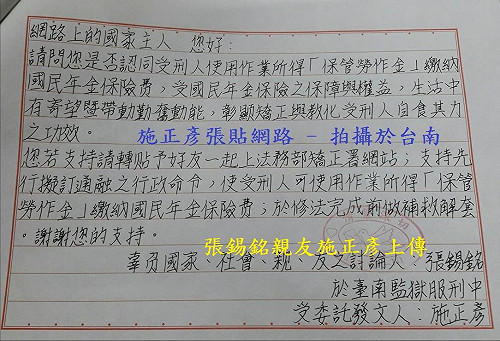 網路上的國家主人 您好:
請問您是否認同受刑人使用作業所得「保管勞作金」繳納
國民年金保險費,受國民年金保險之保障與權益,生活中
有寄望暨帶動勤奮動能,彰顯矯正與教化受刑人自食其力
之功效。
施正彥張貼網路 - 拍攝於台南
您若支持請轉貼予好友一起上法務部矯正署網站;支持先
行擬訂通融之行政命令,使受刑人可使用作業所得「保管
勞作金」繳納國民年金保險費;於修法完成前做補救解套
。謝謝您的支持。
張錫銘親友施正彥上傳
辜負國家、社會、親、友之討論人:張錫銘
於臺南監獄服刑中
受委託發文人:施正彥